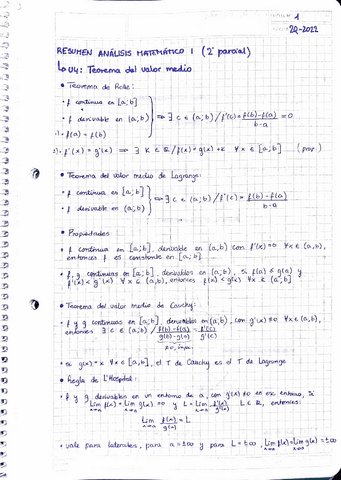 1
2Q-2022
RESUMEN ANÁLISIS MATEMÁTICO I (2° parcial)
↳ U4: Teorema del valor medio
• Teorema de Rolle:
• f continua en [a;b]
• f derivable en (a;b) } ⟹ ∃ c ∈ (a;b) / f'(c) = f(b)-f(a) / b-a = 0
• f(a) = f(b)
f'(x) = g'(x) ⟹ ∃ K ∈ ℝ / f(x) = g(x) + K ∀x ∈ [a;b] (prop)
• Teorema del valor medio de Lagrange:
• f continua en [a;b]
• f derivable en (a;b) } ⟹ ∃ c ∈ (a;b) / f'(c) = f(b)-f(a) / b-a
• Propiedades
• f continua en [a;b], derivable en (a,b) con f'(x)=0 ∀x ∈ (a,b),
entonces f es constante en [a;b].
• f, g continuas en [a;b], derivables en (a;b), si f(a) ≤ g(a) y
f'(x) < g'(x) ∀x ∈ (a,b), entonces f(x) < g(x) ∀x ∈ (a,b]
• Teorema del valor medio de Cauchy:
• f y g continuas en [a;b], derivables en (a,b), con g'(x) ≠ 0 ∀x ∈ (a,b),
entonces ∃ c ∈ (a,b) / f(b)-f(a) / g(b)-g(a) = f'(c) / g'(c)
≠0
• si g(x) = x ∀x ∈ [a,b], el T de Cauchy es el T de Lagrange
• Regla de L'Hospital:
• f y g derivables en un entorno de a, con g'(x) ≠ 0 en ese entorno, si
Lim x→a f(x) = Lim x→a g(x) = 0 y L = Lim x→a f'(x) / g'(x) L ∈ ℝ, entonces:
Lim x→a f(x) / g(x) = L
• vale para laterales, para a = ±∞ y para L = ±∞, Lim x→a f(x) = Lim x→a g(x) = ±∞